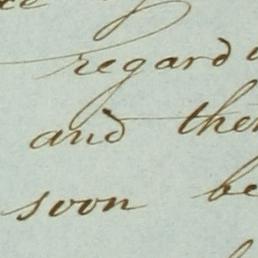 regard
and the
soon be